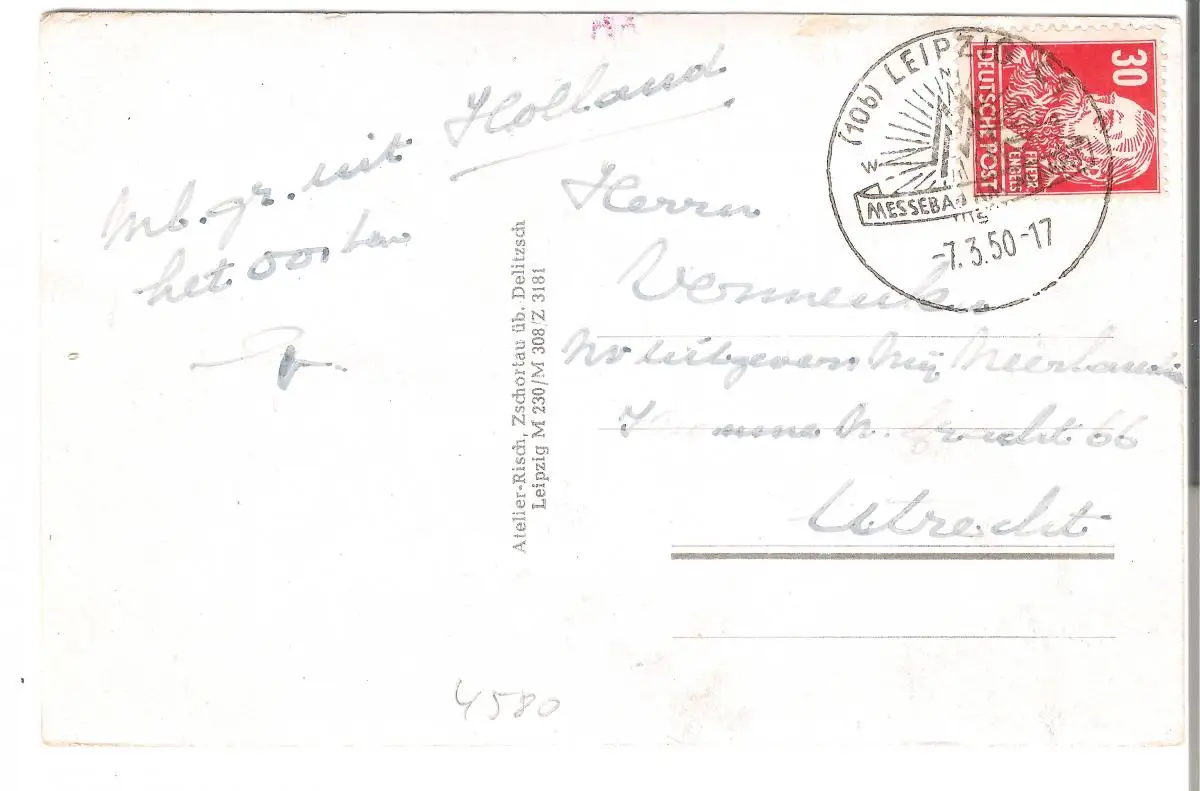 Holland
Mb. gr. uit
het oosten
Atelier-Risch, Zschortau üb. Delitzsch
Leipzig M 230/M 308/Z 3181
(10b) LEIPZIG
N
W
MESSEBA
-7.3.50-17
30
DEUTSCHE POST
FRIEDR.
ENGELS
Herrn
NV uitgevers Mij
gracht 66
Utrecht
4580